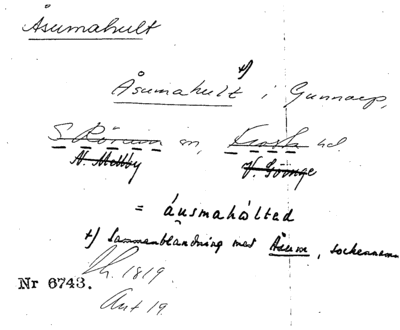 Åsumahult
+)
Åsumahult i Gunnarp,
S Rörum sn, Frosta hd
N. Mellby V. Göinge
= áusmahölted
+) Sammanblandning med Åsum, sockennamn
Nr 6743.
1819
Ant 19.